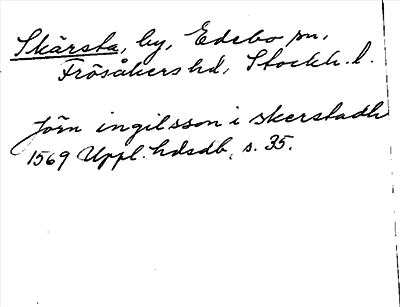 Skärsta, by, Edebo sn,
Frösåkers hd, Stockh. l.
Jörn ingilsson i skerstadh
1569 Uppl. hdsdb, s. 35.